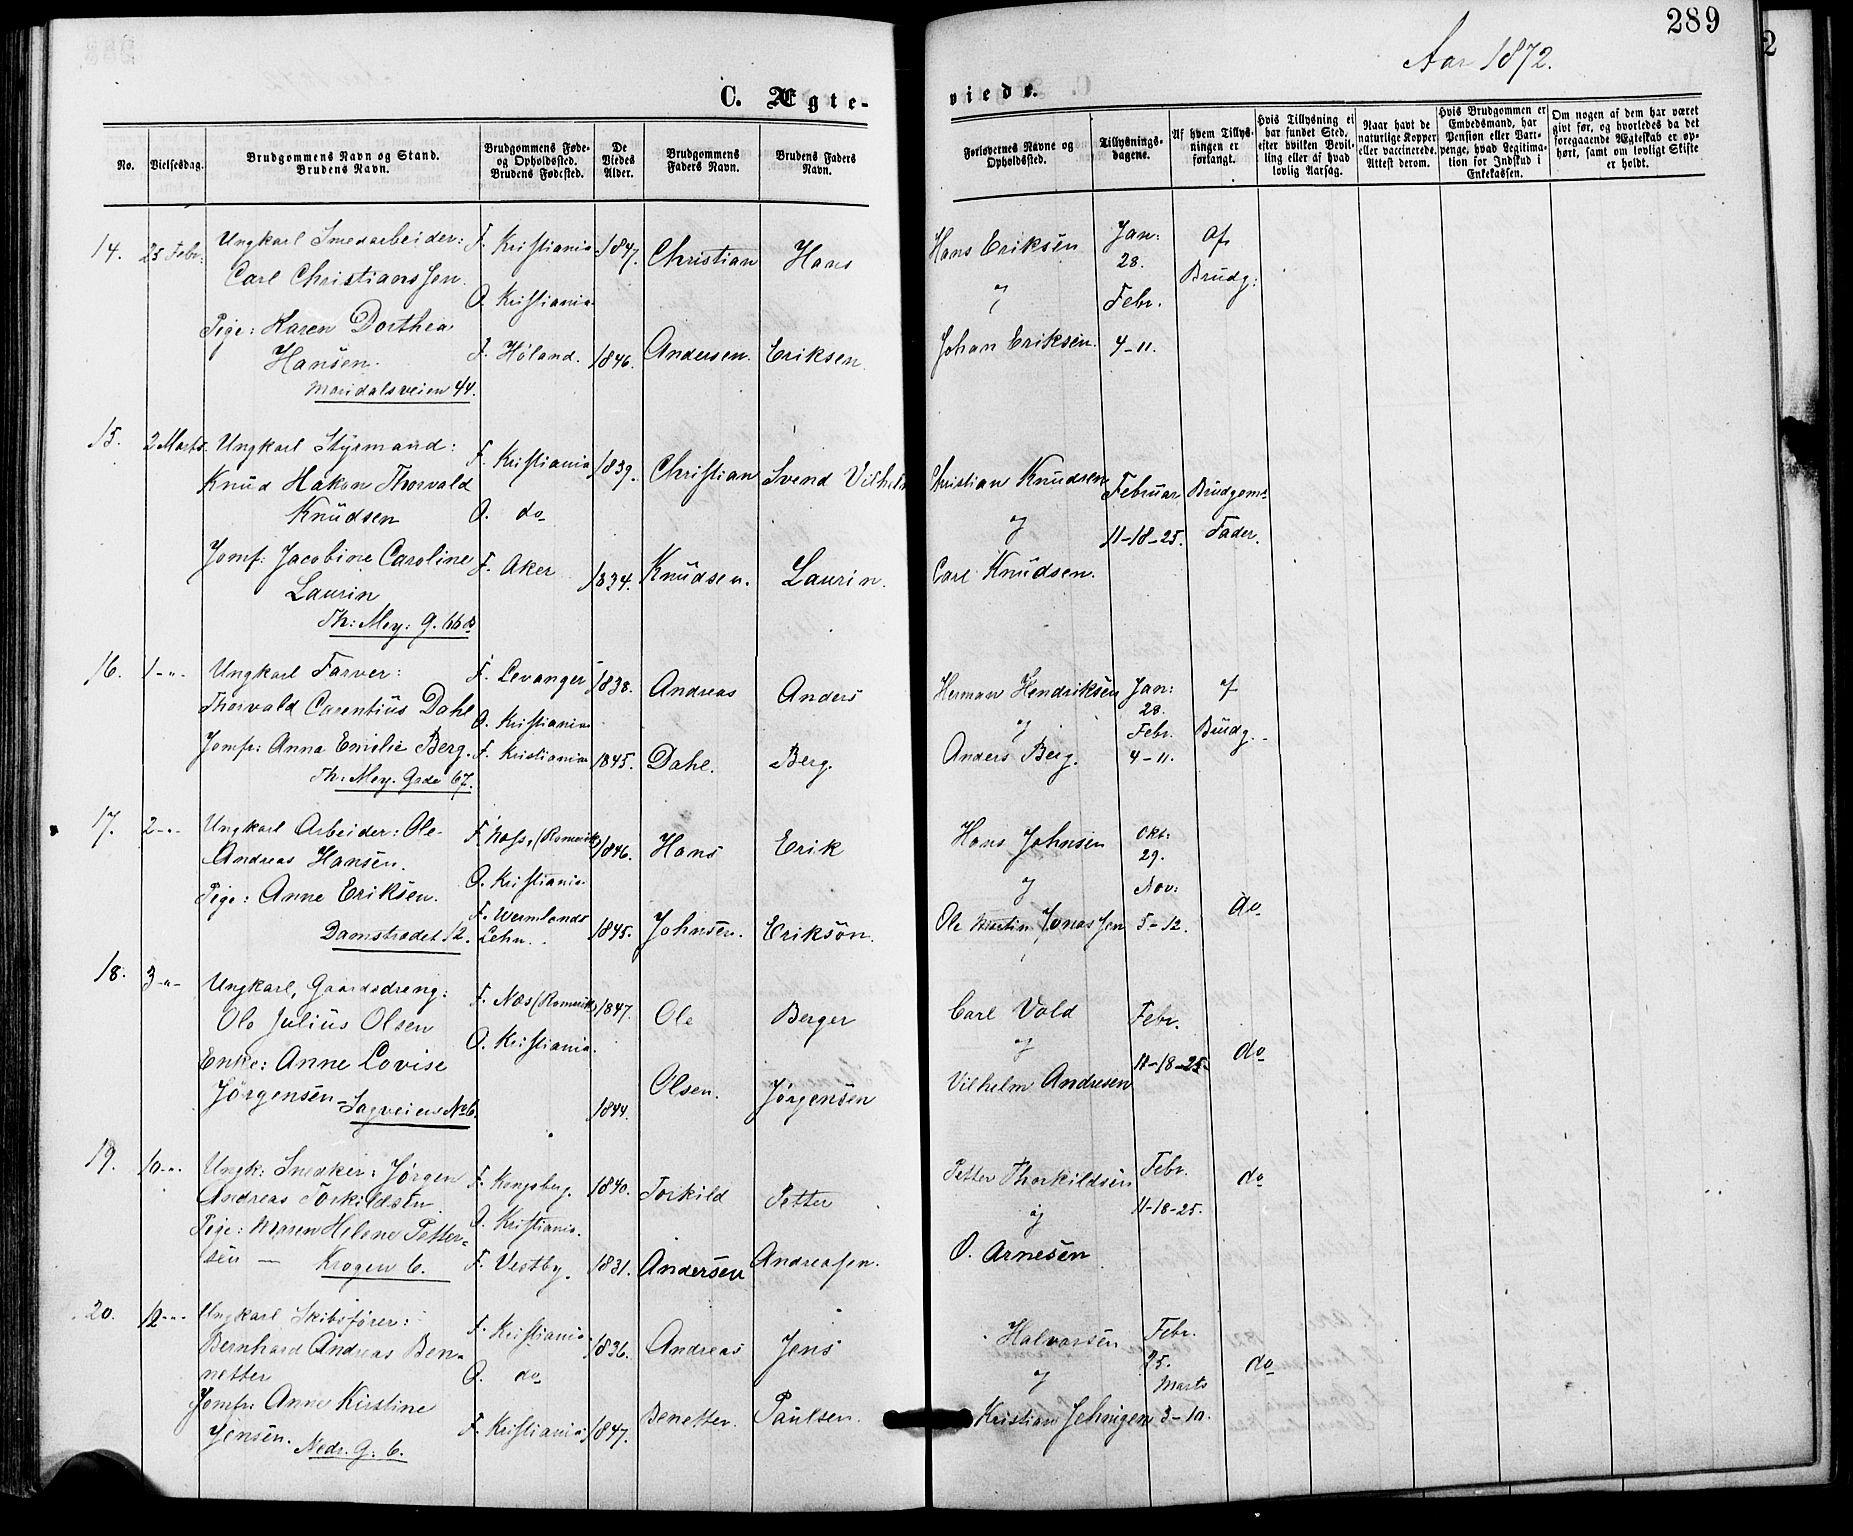 289
Aar 1872.
C. Ægte-
viede.
No.
Vielsesdag.
Brudgommens Navn og Stand.
Brudens Navn.
Brudgommens Føde-
og Opholdssted.
Brudens Fødested.
De
Viedes
Alder.
Brudgommens
Faders Navn.
Brudens Faders
Navn.
Forlovernes Navne og
Opholdssted.
Tillysnings-
dagene.
Af hvem Tillys-
ningen er
forlangt.
Hvis Tillysning ei
har fundet Sted,
efter hvilken Bevil-
ling eller af hvad
lovlig Aarsag.
Naar havt de
naturlige Kopper
eller vaccinerede.
Attest derom.
Hvis Brudgommen er
Embedsmand, har
Pension eller Vart-
penge, hvad Legitima-
tion for Indskud i
Enkekassen.
Om nogen af dem har været
givt før, og hvorledes da det
foregaaende Ægteskab er op-
hørt, samt om lovligt Skifte
er holdt.
14.
25 Febr:
Ungkarl Smedarbeider:
Carl Christianssen.
Pige: Karen Dorthea
Hansen.
Maridalsveien 44.
F. Kristiania
O. Kristiania
F. Høland.
1847.
1846.
Christian
Andersen.
Hans
Eriksen.
Hans Eriksen
og
Johan Eriksen.
Jan:
28.
Febr.
4-11.
af
Brudg:
15.
2 Marts.
Ungkarl Styrmand:
Knud Haken Thorvald
Knudsen
Jomf: Jacobine Caroline
Laurin
Th: Mey: G. 66
F. Kristiania
O. do
F. Aker
1839.
1834.
Christian
Knudsen.
Svend Vilhelm
Laurin.
Christian Knudsen
og
Carl Knudsen.
Februar
11-18-25.
Brudgoms
Fader.
16.
1-"-
Ungkarl Farver:
Thorvald Carentius Dahl
Jomfr: Anna Emilie Berg.
Th: Mey. Gade 67.
F. Levanger
O. Kristiania
F. Kristiania
1838.
1845.
Andreas
Dahl.
Anders
Berg.
Herman Hendriksen
og
Anders Berg.
Jan:
28.
Febr.
4-11.
af
Brudg.
17.
2-"-
Ungkarl Arbeider: Ole
Andreas Hansen.
Pige: Anne Eriksen.
Damstrædet 12.
F. Næss, (Romerike)
O. Kristiania
F. Wermlands
Lehn.
1846.
1845.
Hans
Johnsen.
Erik
Eriksön.
Hans Johnsen
og
Ole Martin Jonassen
Okt:
29.
Nov:
5-12.
do
18.
3-"-
Ungkarl, Gaardsdreng:
Ole Julius Olsen
Enke: Anne Lovise
Jørgensen
Sagveien No 6
F. Næs (Romerike)
O. Kristiania.
1847.
1844.
Ole
Olsen.
Berger
Jørgensen
Carl Vold
og
Vilhelm Andresen
Febr.
11-18-25.
do
19.
10-"-
Ungk: Snedker: Jörgen
Andreas Torkildsen.
Pige: Maren Helene Petter-
sen — Krogen 6.
F. Kongsberg.
O. Kristiania.
F. Vestby.
1840.
1831.
Torkild
Andersen
Petter
Andreasen.
Petter Thorkildsen
og
O. Arnesen
Febr.
11-18-25.
do
20.
12-"-
Ungkarl Skibsfører:
Bernhard Andreas Ben-
netter
Jomfr: Anne Kirstine
Jensen. Nedr. G: 6.
F. Kristiania
O. do
F. Kristiania
1836.
1847.
Andreas
Benetter.
Jens
Paulsen.
Halvorsen
og
Kristian
Febr.
25.
Marts
3-10.
do